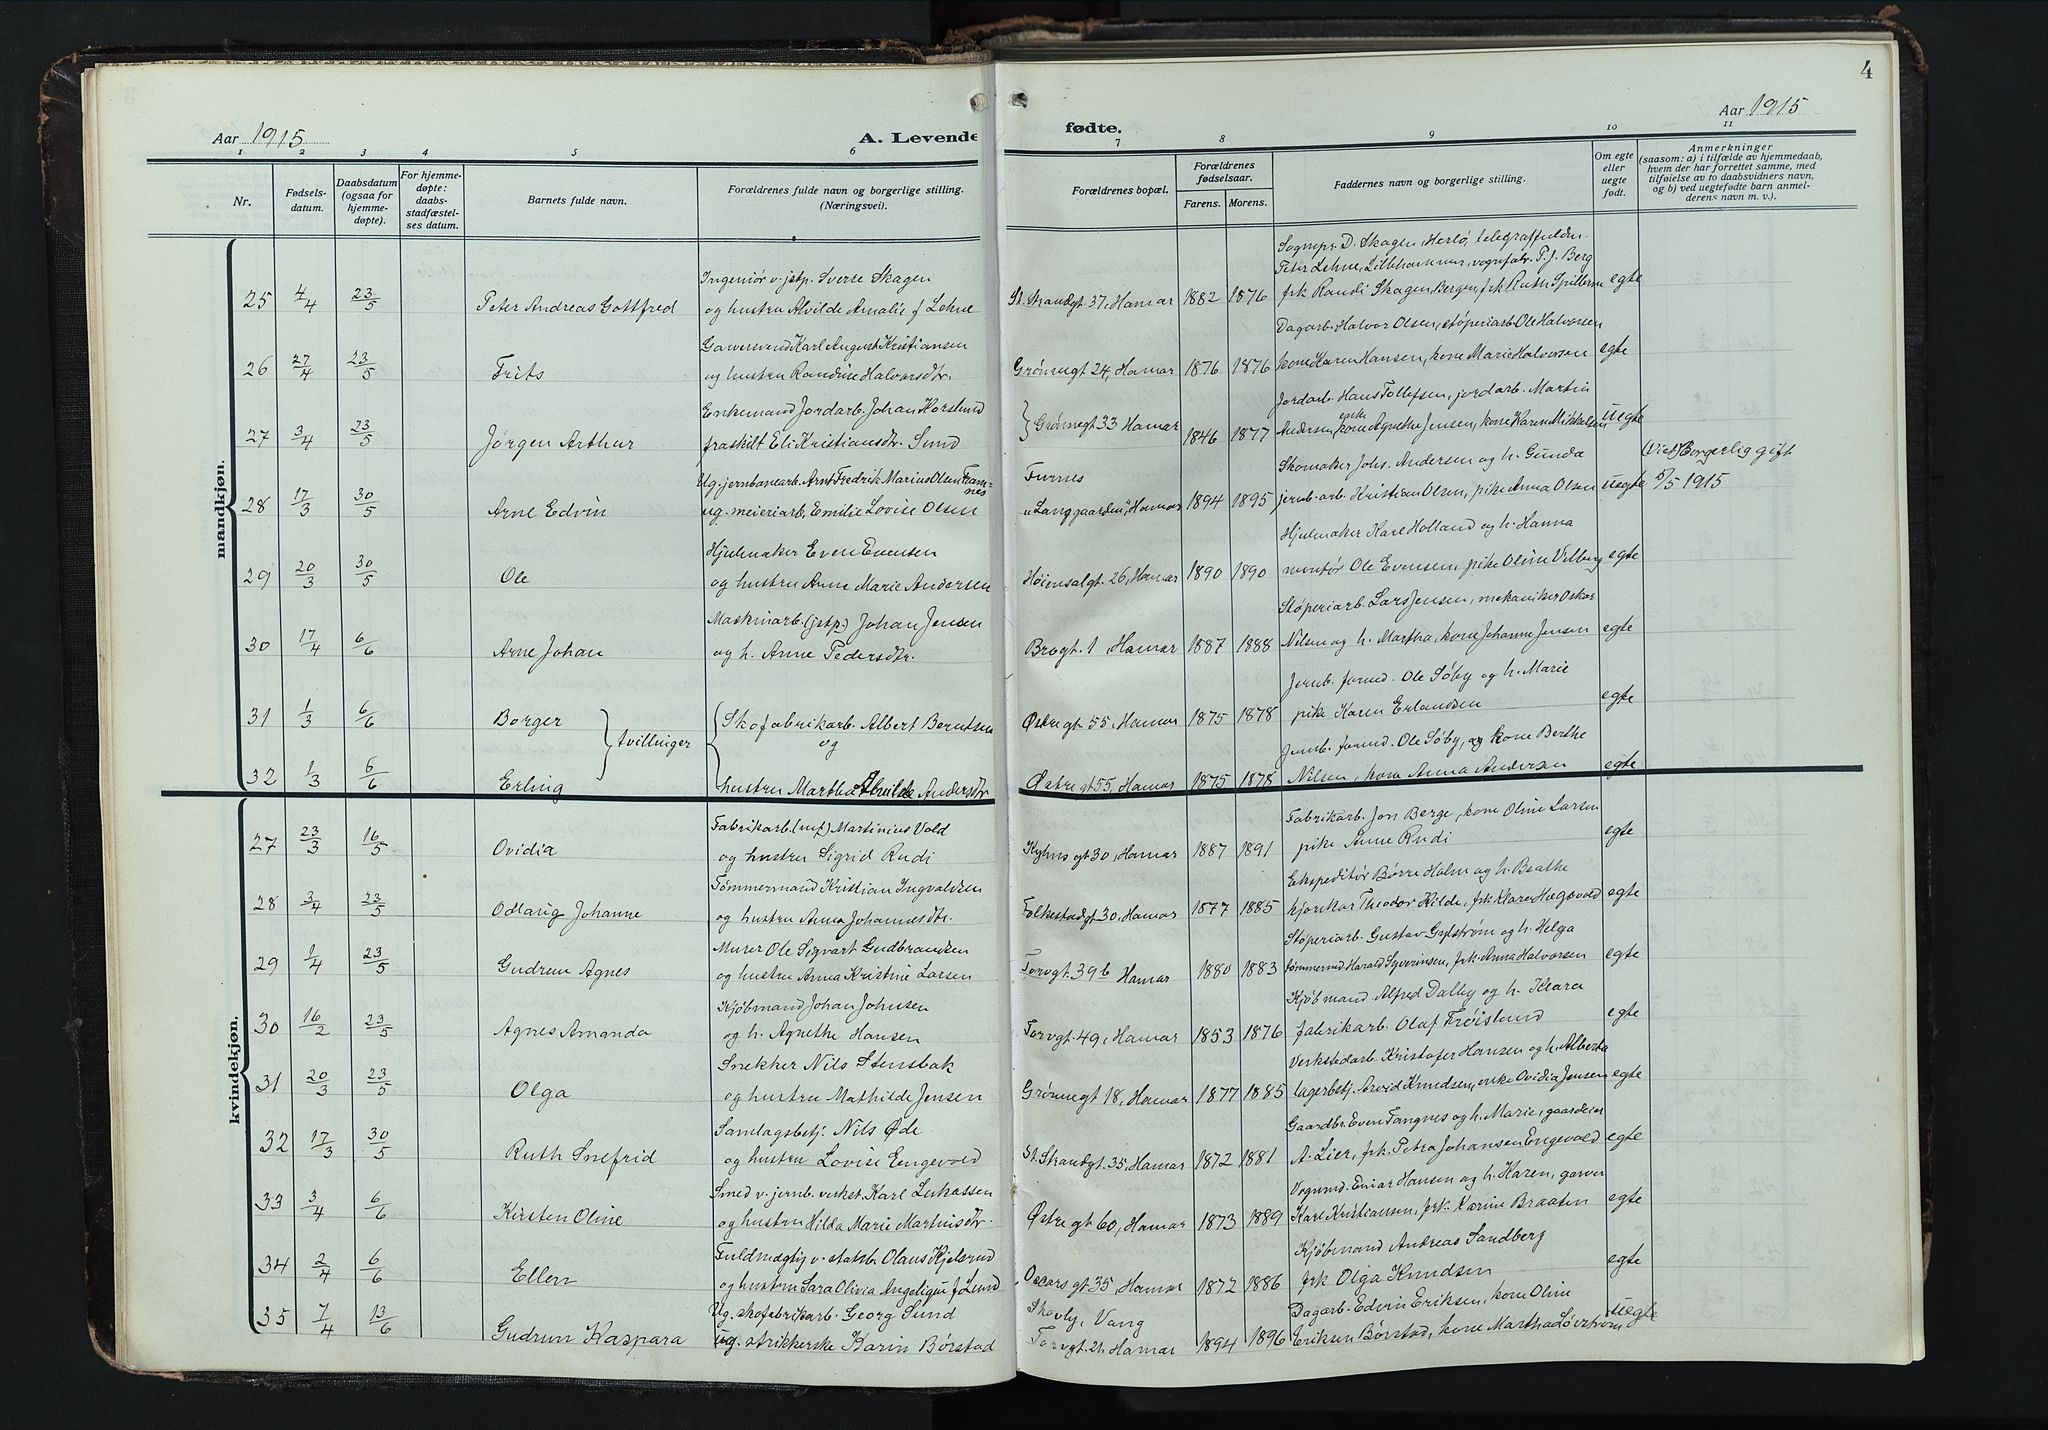 4
Aar 1915
A. Levende fødte.
Aar 1915
1 2 3 4 5 6 7 8 9 10 11
Nr.
Fødsels-
datum.
Daabsdatum
(ogsaa for
hjemme-
døpte).
For hjemme-
døpte:
daabs-
stadfæstel-
ses datum.
Barnets fulde navn.
Forældrenes fulde navn og borgerlige stilling.
(Næringsvei).
Forældrenes bopæl.
Forældrenes
fødselsaar.
Farens. Morens.
Faddernes navn og borgerlige stilling.
Om egte
eller
uegte
født.
Anmerkninger
(saasom: a) i tilfælde av hjemmedaab,
hvem der har forrettet samme, med
tilføielse av to daabsvidners navn,
og b) ved uegtefødte barn anmel-
derens navn m. v.).
mandkjøn.
Sognepr. D. Skagen, Herlø, telegraffuldm.
Ingeniør v. jstp. Sverse Skagen Peter Lehne, Lillehammer, vognfabr. T. J. Berg
25 4/4 23/5 Peter Andreas Gottfred og hustru Alvilde Amalie f. Lehne St. Strandgt. 37, Hamar 1882 1876 frk Randi Skagen Bergen, frk Ruth Spillerm egte
Garversvend Karl August Kristiansen Dagarb. Halvor Olsen, støperiarb. Ole Halvorsen
26 27/4 23/5 Frits og hustru Randine Halvorsdtr. Grønnegt 24, Hamar 1876 1876 kone Karen Hansen, kone Marie Halvorsen egte
Enkemand Jordarb. Johan Korslund Jordarb. Hans Tollefsen, jordarb. Martin
27 3/4 23/5 Jørgen Arthur fraskilt Eli Kristiansdtr. Sund Grønnegt 33 Hamar 1846 1877 Andersen enke Agnethe Jensen, kone Karen Mikkelsen uegte
Ug. jernbanearb. Arnt Fredrik Marius Olsen Framnes Furnes Skomaker Johs. Andersen og h. Gunda (Viet) Borgerlig gift
28 17/3 30/5 Arne Edvin ug. meieriarb. Emilie Lovise Olsen "Langgaarden", Hamar 1894 1895 jernb.arb. Kristian Olsen, pike Anna Olsen uegte 5/5 1915
Hjulmaker Even Evensen Hjulmaker Karl Holland og h. Hanna
29 20/3 30/5 Ole og hustru Anne Marie Andersen Høiensalgt. 26, Hamar 1890 1890 montør Ole Evensen, pike Oline Vilberg egte
Maskinarb. (jstp.) Johan Jensen Støperiarb. Lars Jensen, mekaniker Oskar
30 17/4 6/6 Arne Johan og h. Anne Pedersdtr. Brogt. 1, Hamar 1887 1888 Nilsen og h. Martha, kone Johanne Jensen egte
Jernb. formd. Ole Søby og h. Marie
31 1/3 6/6 Borger Skofabrikarb. Albert Berntsen Østregt 55, Hamar 1875 1878 pike Karen Erlandsen egte
tvillinger og Jernb. formd. Ole Søby, og kone Berthe
32 1/3 6/6 Erling hustru Martha Alvilde Andersdtr Østregt 55, Hamar 1875 1878 Nilsen, kone Anna Andersen egte
kvindekjøn.
Fabrikarb. (mf) Martinius Vold Fabrikarb. Jon Berge, kone Oline Larsen
27 23/3 16/5 Ovidia og hustru Sigrid Rudi Kyhnsgt 30, Hamar 1887 1891 pike Anne Rudi egte
Tømmermand Kristian Ingvaldsen Ekspeditør Børre Holm og h. Beathe
28 3/4 23/5 Odlaug Johanne og hustru Anna Johannesdtr. Folkestadgt 30, Hamar 1877 1885 kjørekar Theodor Kilde, frk Klara Hagevold egte
Murer Ole Sigvart Gudbrandsen Støperiarb. Gustav Gylstrøm og h. Helga
29 1/4 23/5 Gudrun Agnes og hustru Anna Kristine Larsen Torvgt. 39 b Hamar 1880 1883 tømmermd Harald Syverinsen, frk. Anna Halvorsen egte
Kjøbmand Johan Johnsen Kjøbmand Alfred Dalby og h. Klara
30 16/2 23/5 Agnes Amanda og h. Agnethe Hansen Torvgt. 49, Hamar 1853 1876 fabrikarb. Olaf Frøislund egte
Snekker Nils Stensbak Verkstedarb. Kristofer Hansen og h. Alberta
31 20/3 23/5 Olga og hustru Mathilde Jensen Grønnegt 18, Hamar 1877 1885 lagerbetj. Arvid Knudsen, enke Ovidia Jensen egte
Samlagsbetj. Nils Øde Gaardbr. Even Tangnes og h. Marie, gaardeier
32 17/3 30/5 Ruth Snefrid og hustru Lovise Engevold St. Strandgt. 35, Hamar 1872 1881 A. Lier, frk. Petra Johansen Engevold egte
Smed v. jernb. verkst. Karl Lukassen Vognmd. Einar Hansen og h. Karen, garver
33 3/4 6/6 Kirsten Oline og hustru Hilda Marie Martinisdtr. Østregt 60, Hamar 1873 1889 Karl Kristiansen, frk. Karine Braaten egte
Fuldmægtig v. statsb. Olaus Kjelsrud Kjøbmand Andreas Sandberg
34 2/4 6/6 Ellen og hustru Sara Olivia Angelique f. Lund Oscarsgt 35, Hamar 1872 1886 frk Olga Knudsen egte
Ug. skofabrikarb. Georg Sund Skovly, Vang Dagarb. Edvin Eriksen, kone Oline
35 7/4 13/6 Gudrun Kaspara ug. strikkerske Karin Børstad Torvgt. 21, Hamar 1894 1896 Eriksen Børstad, kone Martha Løvstrøm uegte